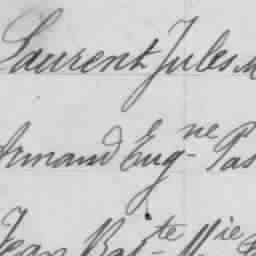 Laurent Jules M
Armand Eug.ne Pas
Jean Bat.te M.ie